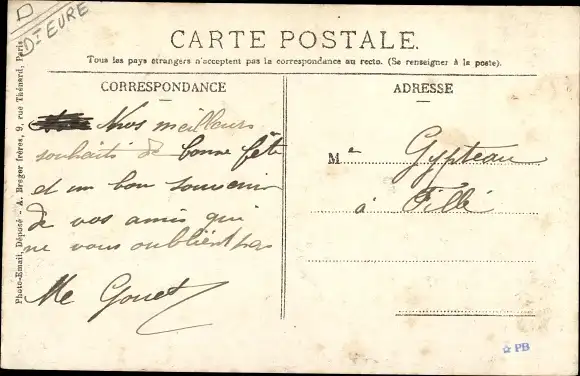 D
Dt EURE
CARTE POSTALE.
Tous les pays étrangers n'acceptent pas la correspondance au recto. (Se renseigner à la poste).
CORRESPONDANCE
ADRESSE
Nos meilleurs
souhaits de bonne fête
et un bon souvenir
de vos amis qui
ne vous oublient pas
Me Gouet
Me Gypteau
à Fillé
Photo-Email, Déposé - A. Breger frères, 9, rue Thénard, Paris
☆ PB